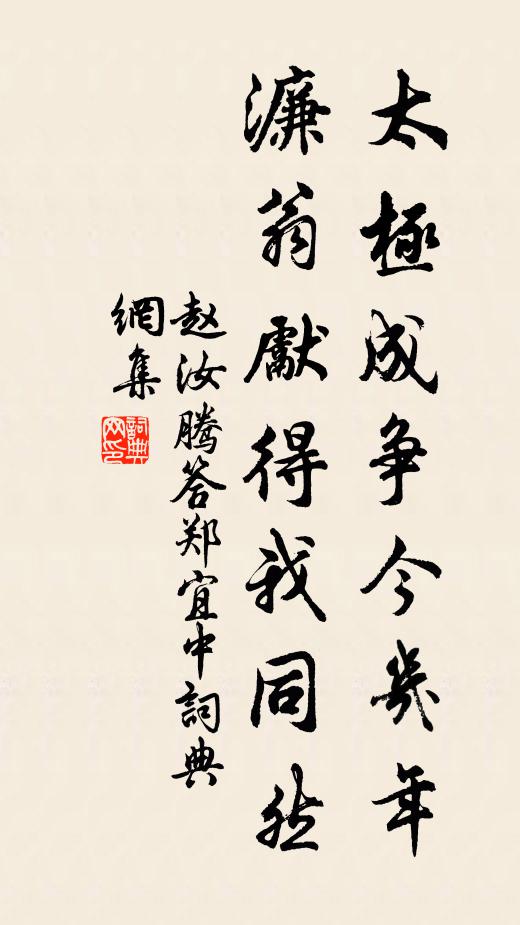 太極成争今幾年
濂翁獻得我同然
赵汝騰答郑宜中詞典
網集
詞典网印